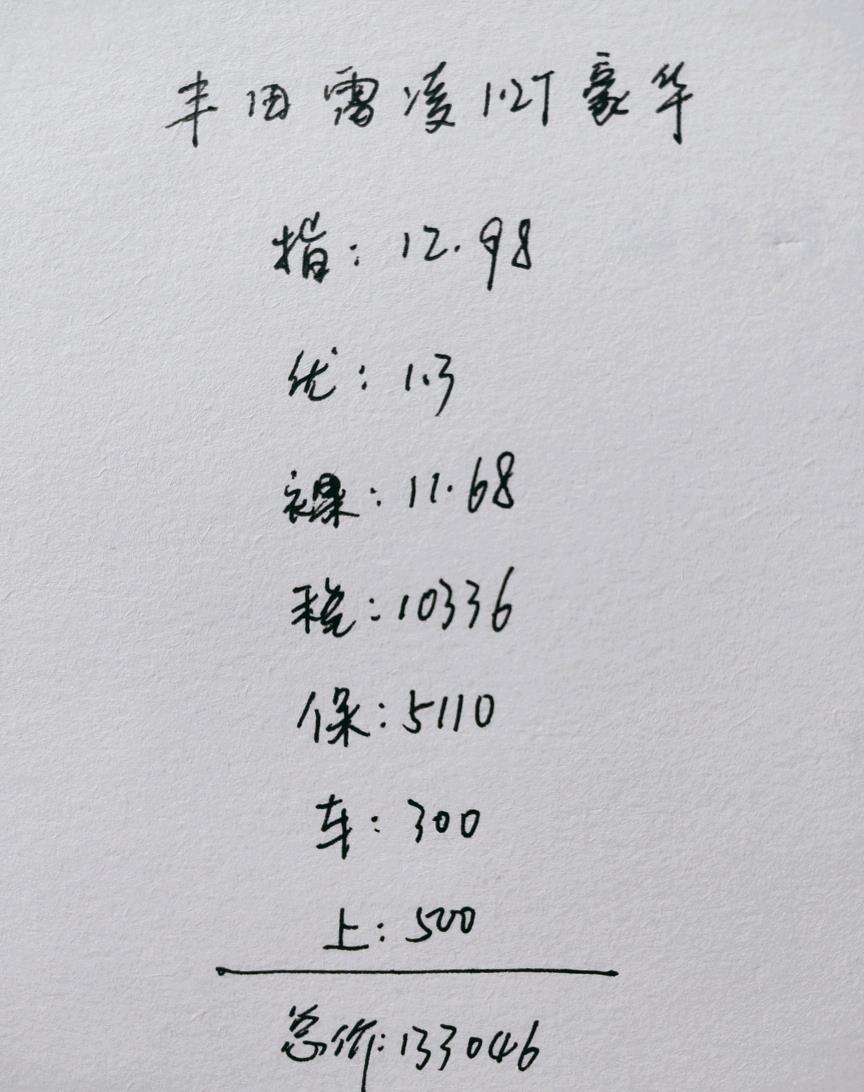 丰田雷凌1.2T豪华
指：12.98
优：1.3
裸：11.68
税：10336
保：5110
车：300
上：500
总价：133046